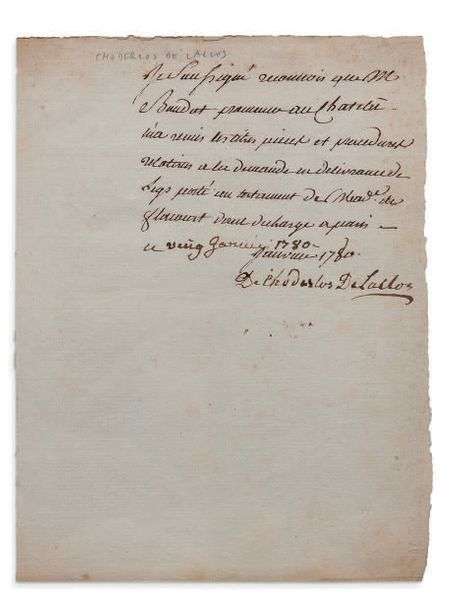 CHODERLOS DE LACLOS
Je Soussigné reconnois que M
Baudot procureur au Chatelet
m'a remis les titres pieces et procedures
relatives a la demande en delivrance de
legs porté au testament de Mad.e de
flacourt dont decharge a paris
ce vingt Janvier 1780
Janvier 1780
De Choderlos De Laclos